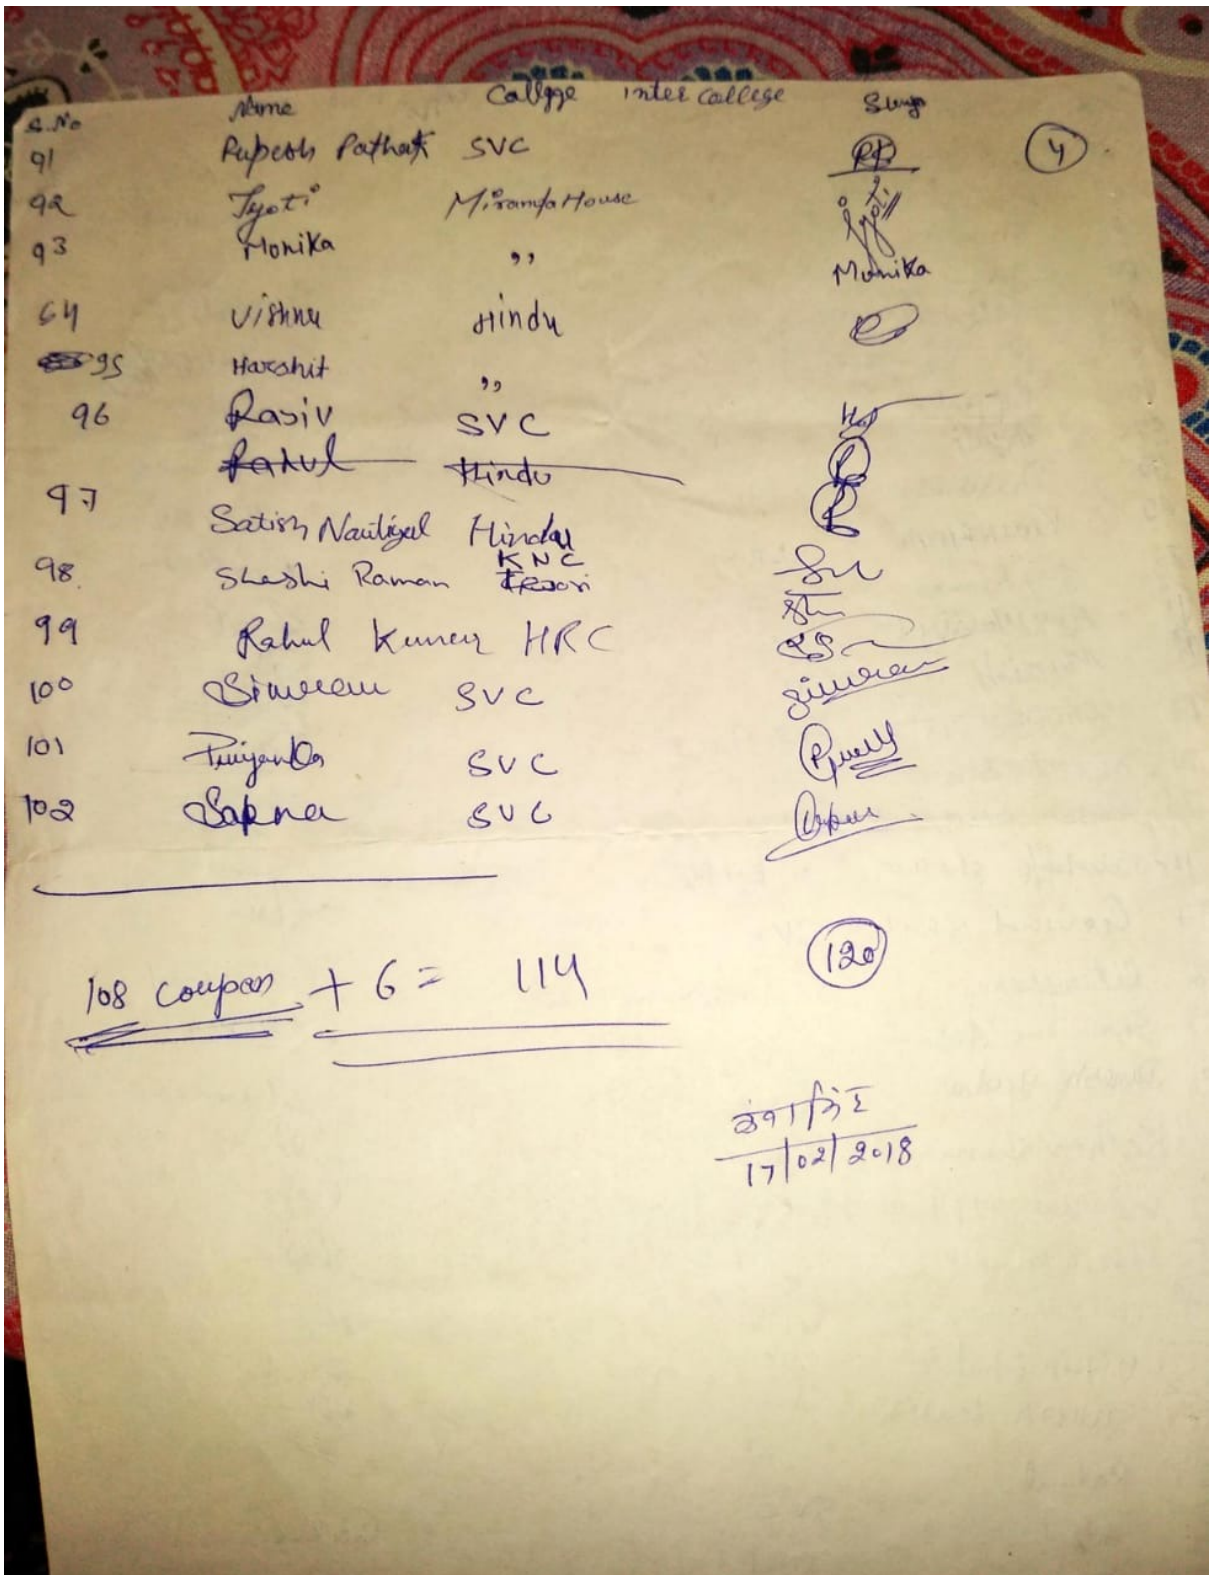 S.No Name Callgge inter college Sign
91 Rupesh Pathak SVC 4
92 Jyoti Miranda House Jyoti
93 Monika ,, Monika
64 Vishnu Hindu
95 Harshit ,,
96 Rasiv SVC
Rahul Hindu
97 Satish Nautiyal Hindu
KNC
98. Shashi Raman
99 Rahul Kumar HRC
100 Simran SVC Simran
101 Priyanka SVC
102 Sapna SVC
120
108 coupon + 6 = 114
17/02/2018